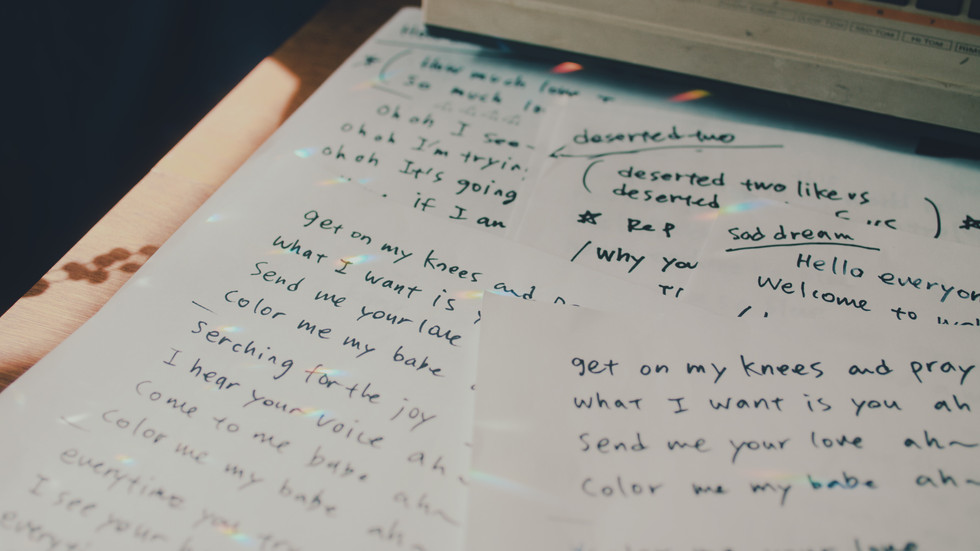 how much love
so much
oh oh I see
oh oh I'm tryin
oh oh It's going
if I am
get on my knees and
what I want is
send me your love
color me my babe
serching for the joy
I hear your voice ah
come to me babe ah~
color me my babe ah~
everytime you
I see your
every
deserted two
( deserted two like us
deserted )
☆ Rep
/ why you
sad dream
Hello everyon
Welcome to
get on my knees and pray
what I want is you ah
send me your love ah~
color me my babe ah~
love